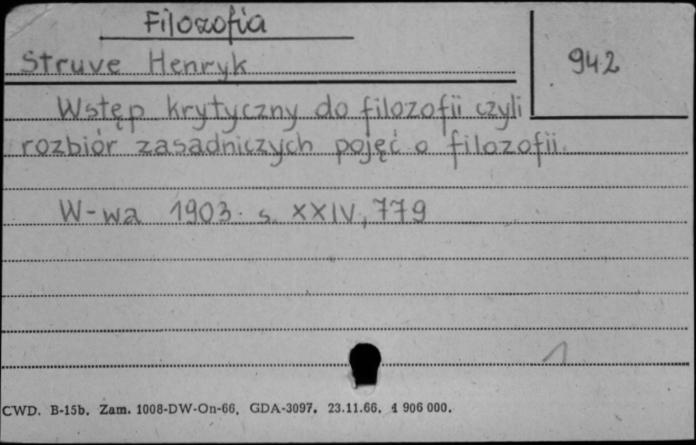 Filozofia
Struve Henryk
942
Wstęp krytyczny do filozofii czyli
rozbiór zasadniczych pojęć o filozofii.
W-wa 1903. s. XXIV, 779
1
CWD. B-15b. Zam. 1008-DW-On-66. GDA-3097. 23.11.66. 4 906 000.